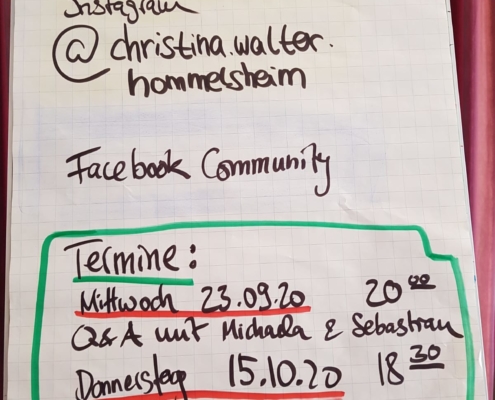 Instagram
@christina.walter.
hommelsheim
Facebook Community
Termine:
Mittwoch 23.09.20 20 00
Q&A mit Michaela & Sebastian
Donnerstag 15.10.20 18 30